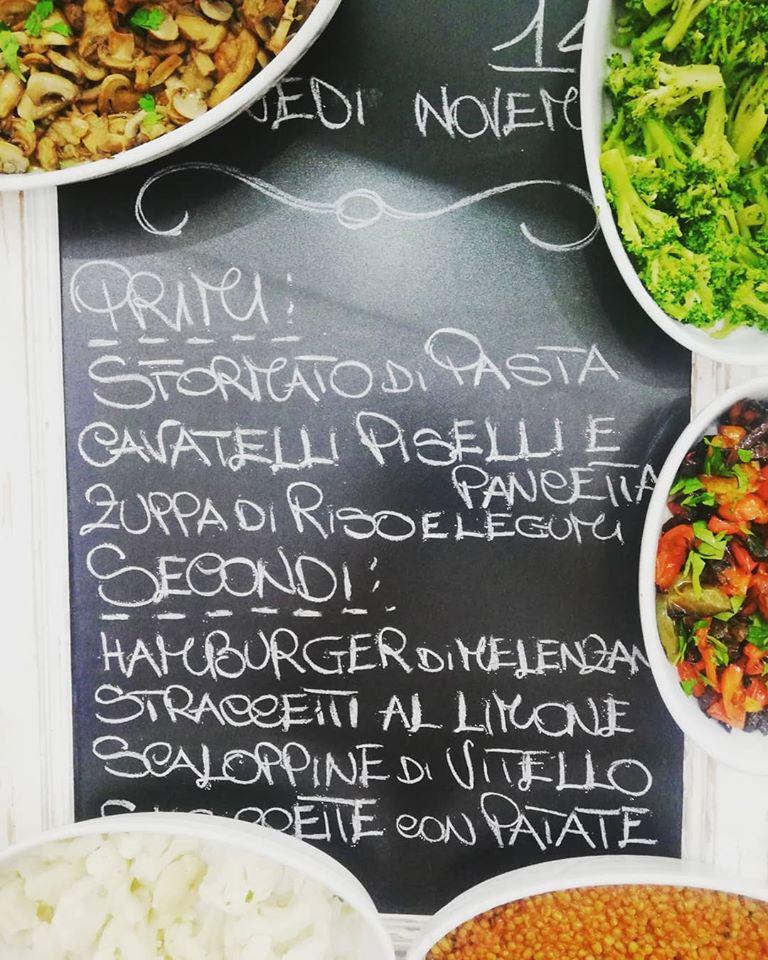 14
NOVEM
PRIMI:
SFORMATO DI PASTA
CAVATELLI PISELLI E
PANCETTA
ZUPPA DI RISO E LEGUMI
SECONDI:
HAMBURGER DI MELENZAN
STRACCETTI AL LIMONE
SCALOPPINE DI VITELLO
CON PATATE